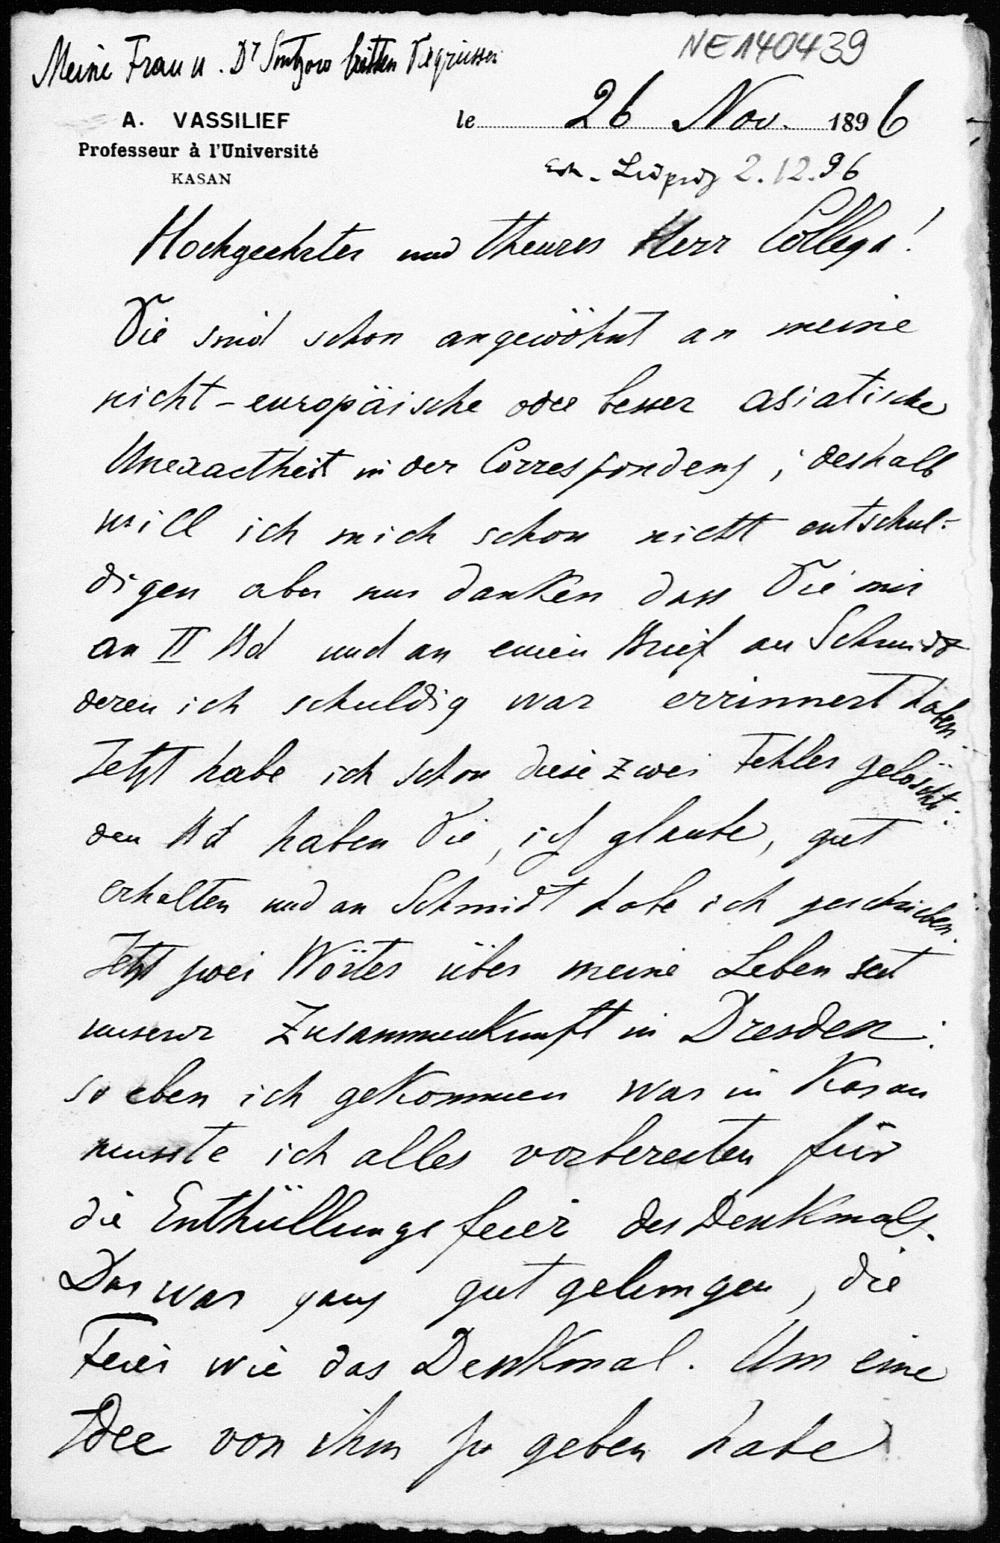 NE140439
Meine Frau u. Dr Sintzow bitten Sie grüssen
A. VASSILIEF
Professeur à l'Université
KASAN
le 26 Nov. 1896
Leipzig 2.12.96
Hochgeehrter und theurer Herr College!
Sie sind schon angewöhnt an meine
nicht-europäische oder besser asiatische
Unexactheit in der Correspondenz; deshalb
will ich mich schon nicht entschul-
digen aber nur danken dass Sie mir
an II Bd und an einen Brief an Schmidt
deren ich schuldig war errinnert haben.
Jetzt habe ich schon diese zwei Fehler gelöscht:
den Bd haben Sie, ich glaube, gut
erhalten und an Schmidt habe ich geschrieben.
Jetzt zwei Wörter über meine Leben seit
unserer Zusammenkunft in Dresden:
so eben ich gekommen war in Kasan
musste ich alles vorbereiten für
die Enthüllungsfeier des Denkmals.
Das war ganz gut gelungen, die
Feier wie das Denkmal. Um eine
Idee von ihm zu geben habe